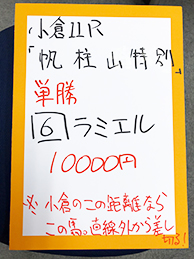 小倉11R
「帆柱山特別」
単勝
6 ラミエル
10000円
※小倉のこの距離なら
この馬。直線外から差し
切る!